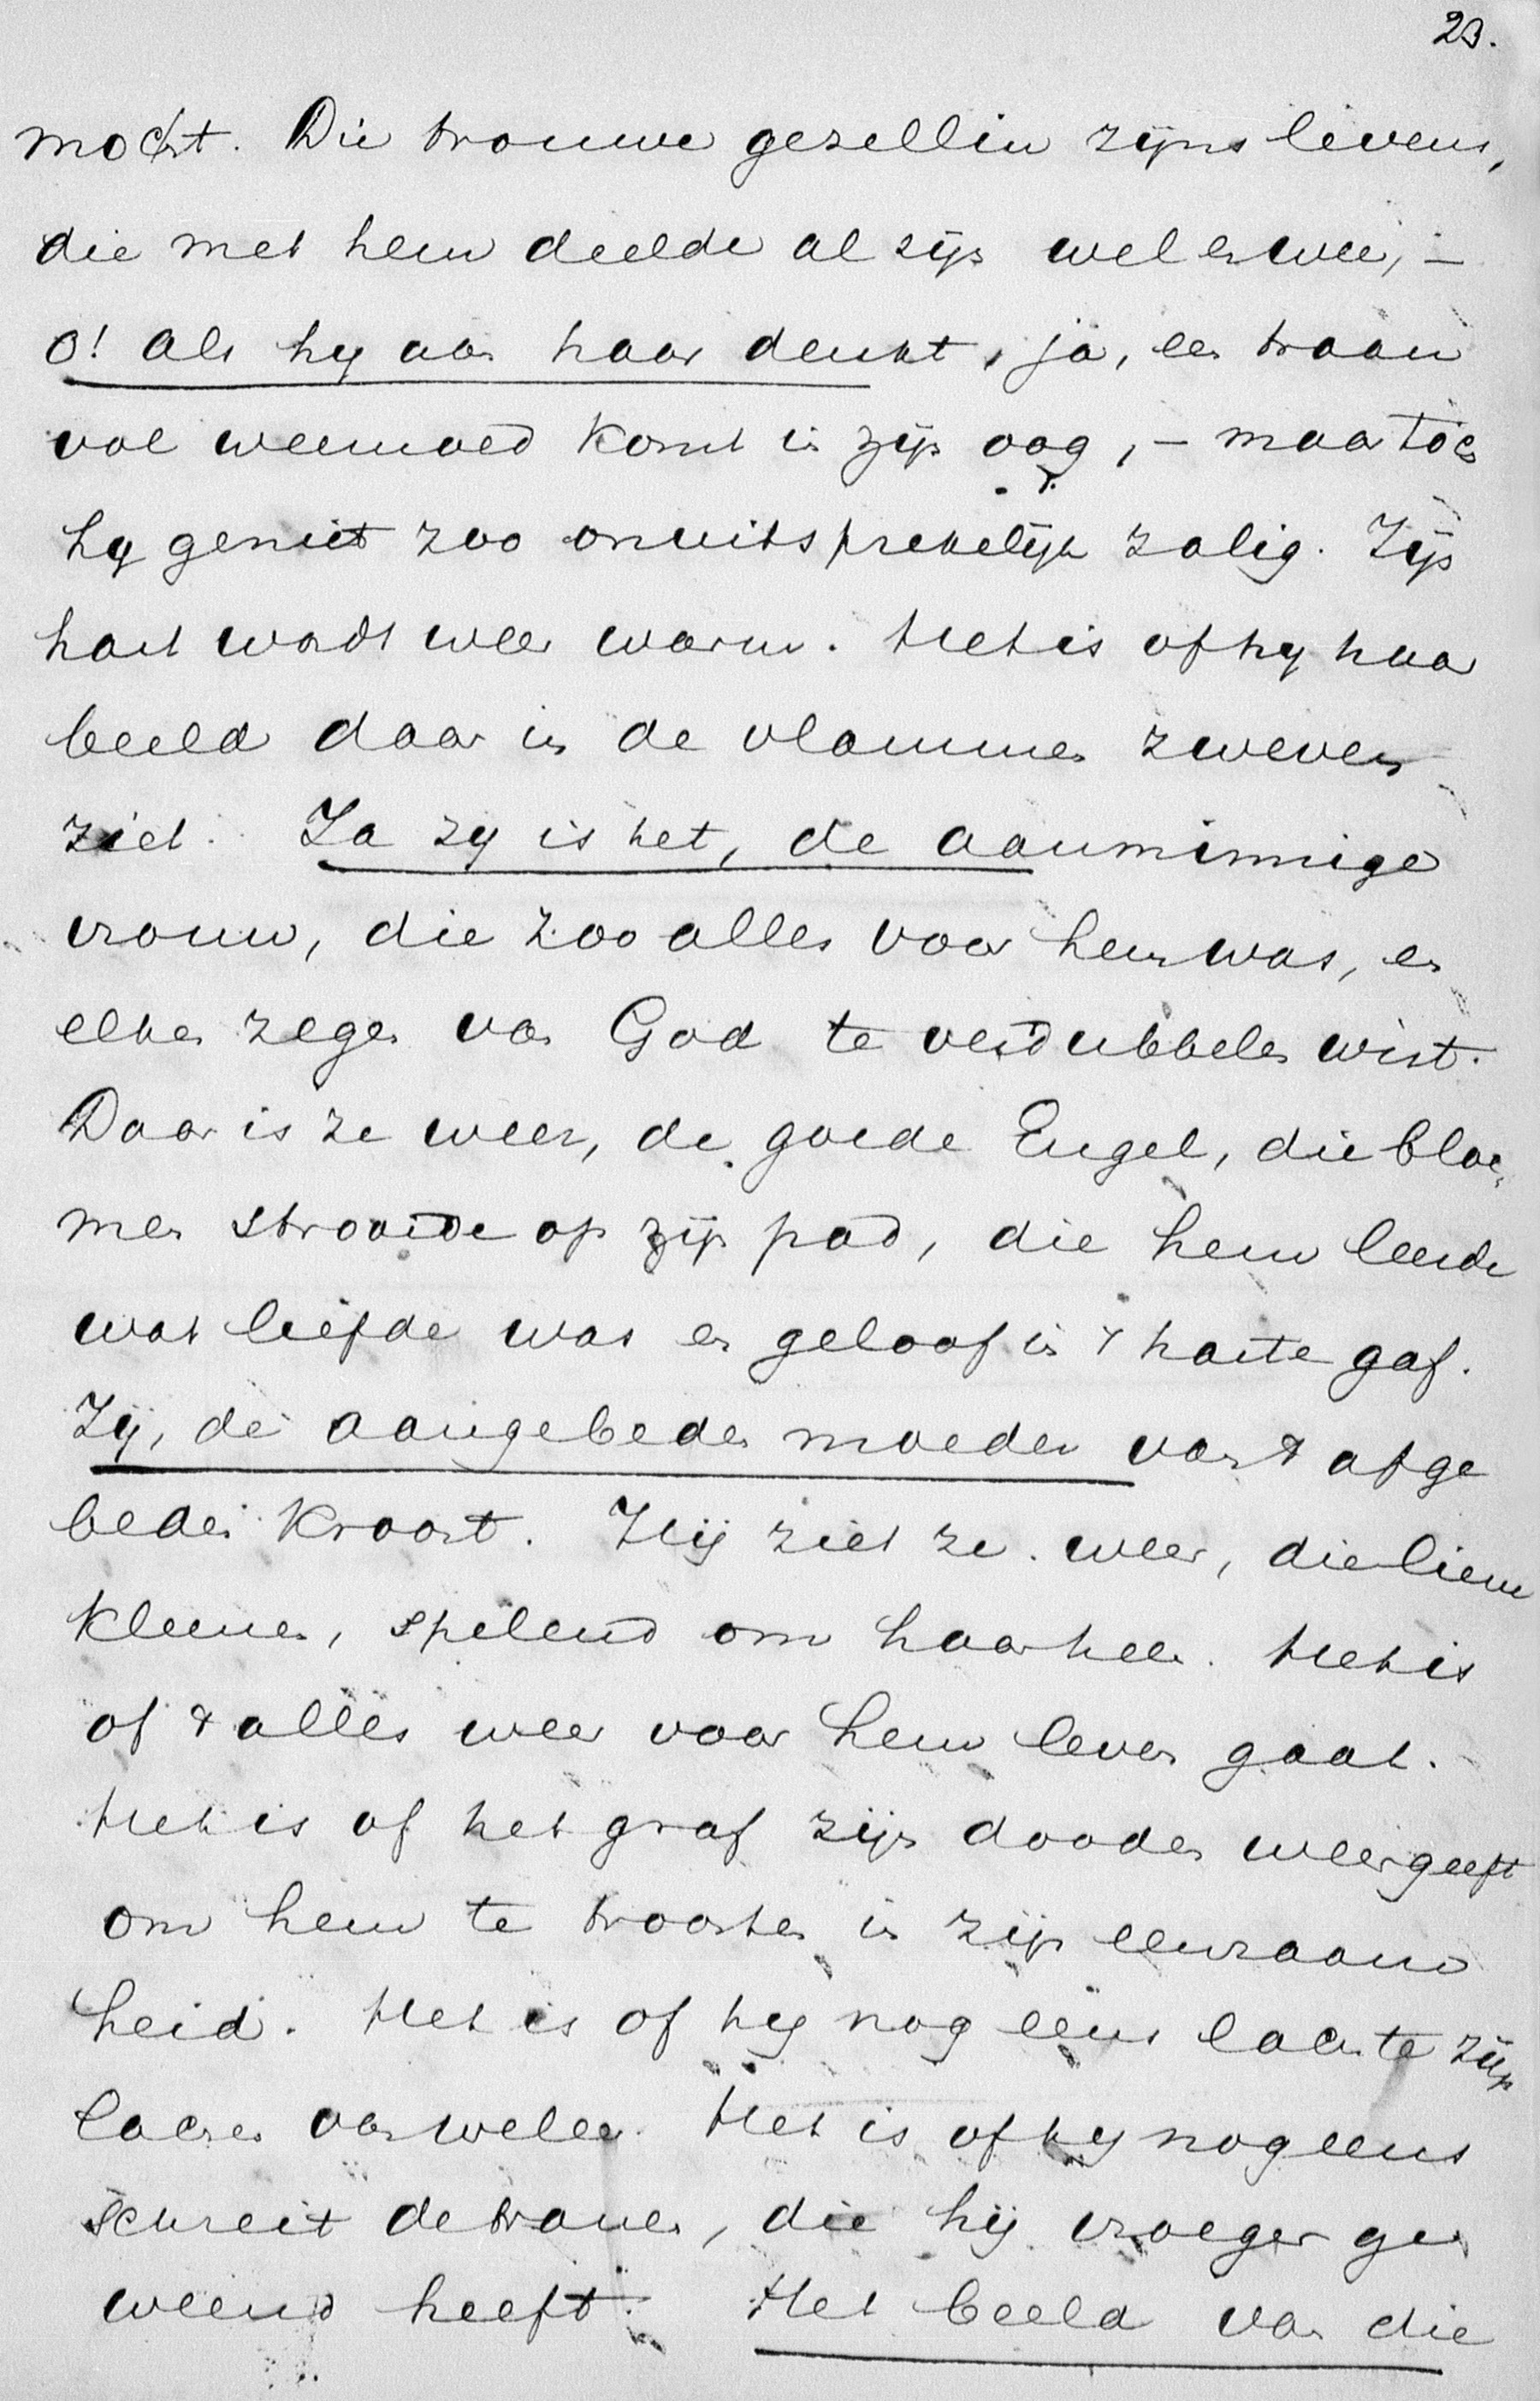 23.
mocht. Die trouwe gezellin zijns levens,
die met hem deelde al zijn wel en wee, –
O! als hij aan haar denkt, ja, een traan
vol weemoed komt in zijn oog, – maar toch
hij geniet zoo onuitsprekelijk zalig. Zijn
hart wordt weer warm. Het is of hij haar
beeld daar in de vlammen zweven
ziet. Ja zij is het, de aanminnige
vrouw, die zoo alles voor hem was, en
elken zegen van God te verdubbelen wist.
Daar is ze weer, de goede Engel, die bloe-
men strooide op zijn pad, die hem leerde
wat liefde was en geloof in 't harte gaf.
Zij, de aangebeden moeder van 't afge
beden kroost. Hij ziet ze weer, die lieve
kleenen, spelend om haar heen. Het is
of 't alles weer voor hem leven gaat.
Het is of het graf zijn dooden weergeeft
om hem te troosten in zijn eenzaam
heid. Het is of hij nog eens lachte zijn
lachen van weleer. Het is of hij nog eens
schreit de tranen, die hij vroeger ge
weend heeft. Het beeld van die